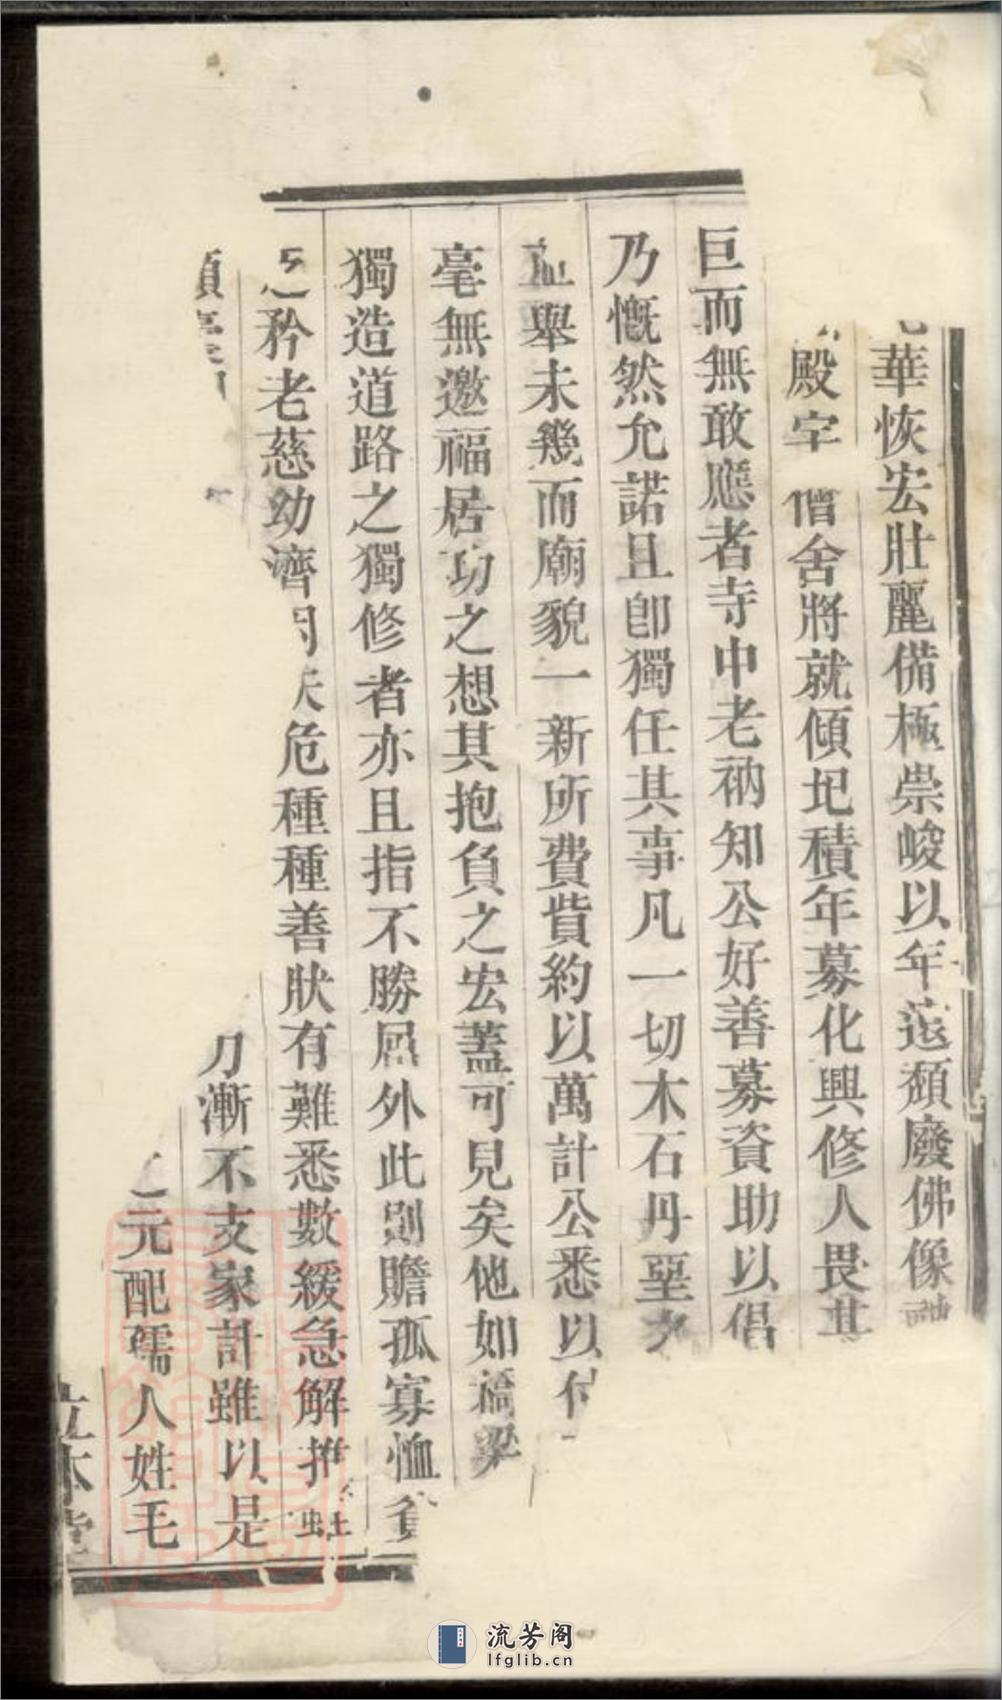 華恢宏壯麗備極崇峻以年遠頹廢佛像
殿宇僧舍將就傾圮積年募化興修人畏其
巨而無敢應者寺中老衲知公好善募資助以倡
乃慨然允諾且卽獨任其事凡一切木石丹堊
舉未幾而廟貌一新所費貲約以萬計公悉以
毫無邀福居功之想其抱負之宏蓋可見矣他如橋梁
獨造道路之獨修者亦且指不勝屈外此則贍孤寡恤貧
矜老慈幼濟困扶危種種善狀有難悉數緩急解推
漸不支家計雖以是
元配孺人姓毛
立本堂
流芳阁
lfglib.cn